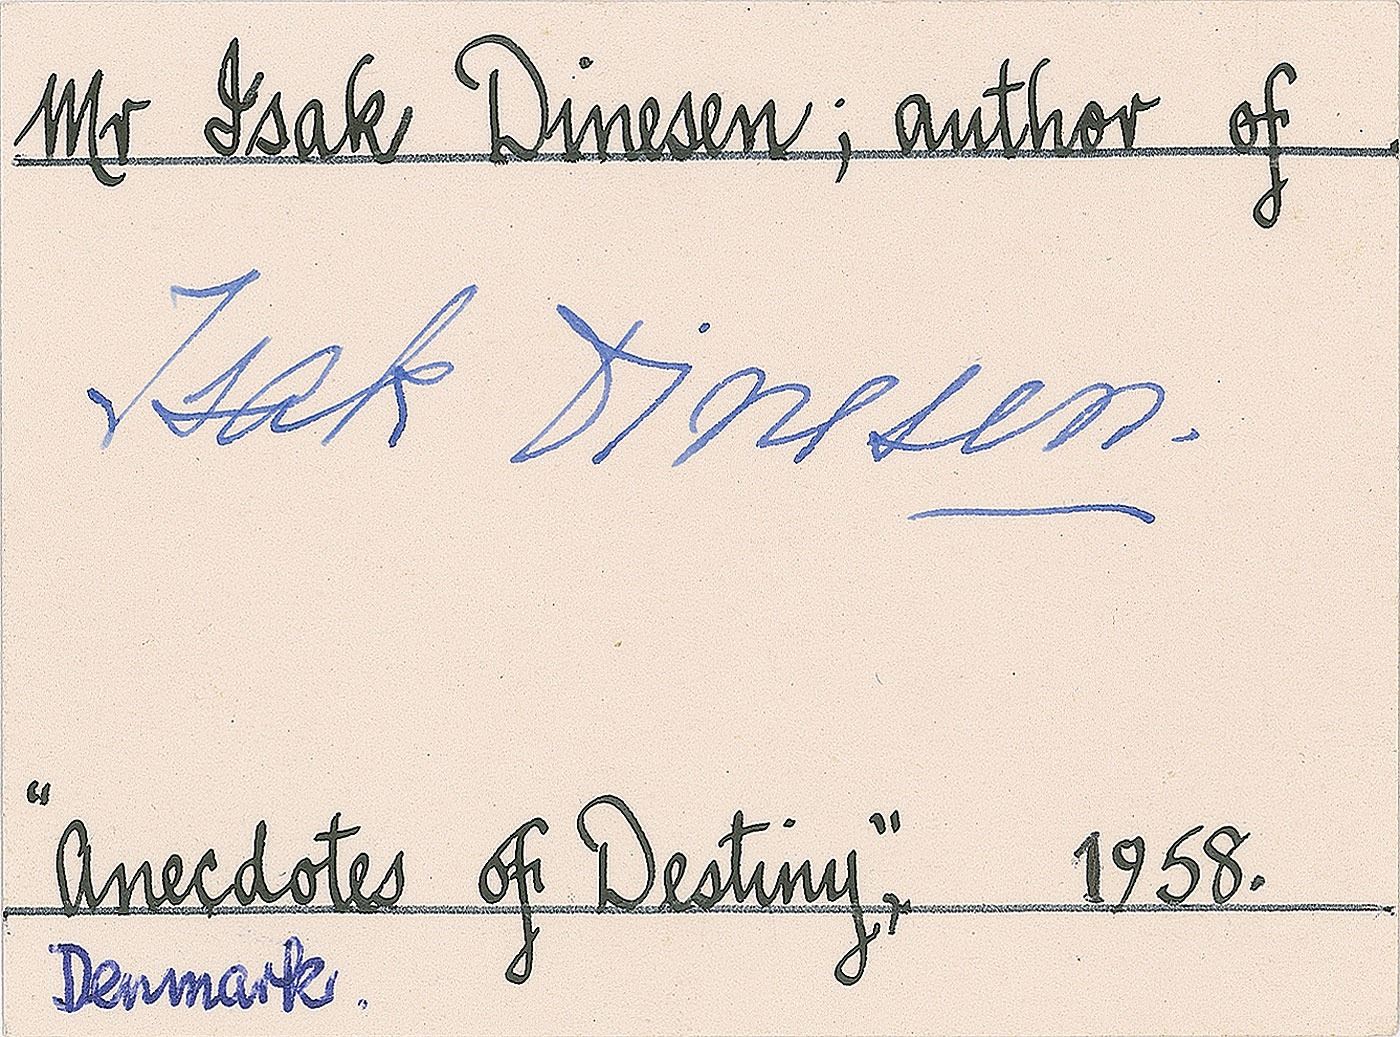 Mr Isak Dinesen; author of
Isak Dinesen.
"Anecdotes of Destiny", 1958.
Denmark.